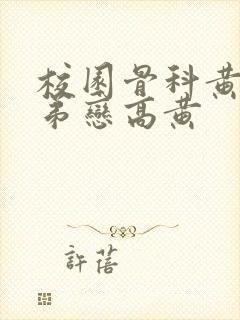 校園骨科黃
弟戀高黃
許蓓